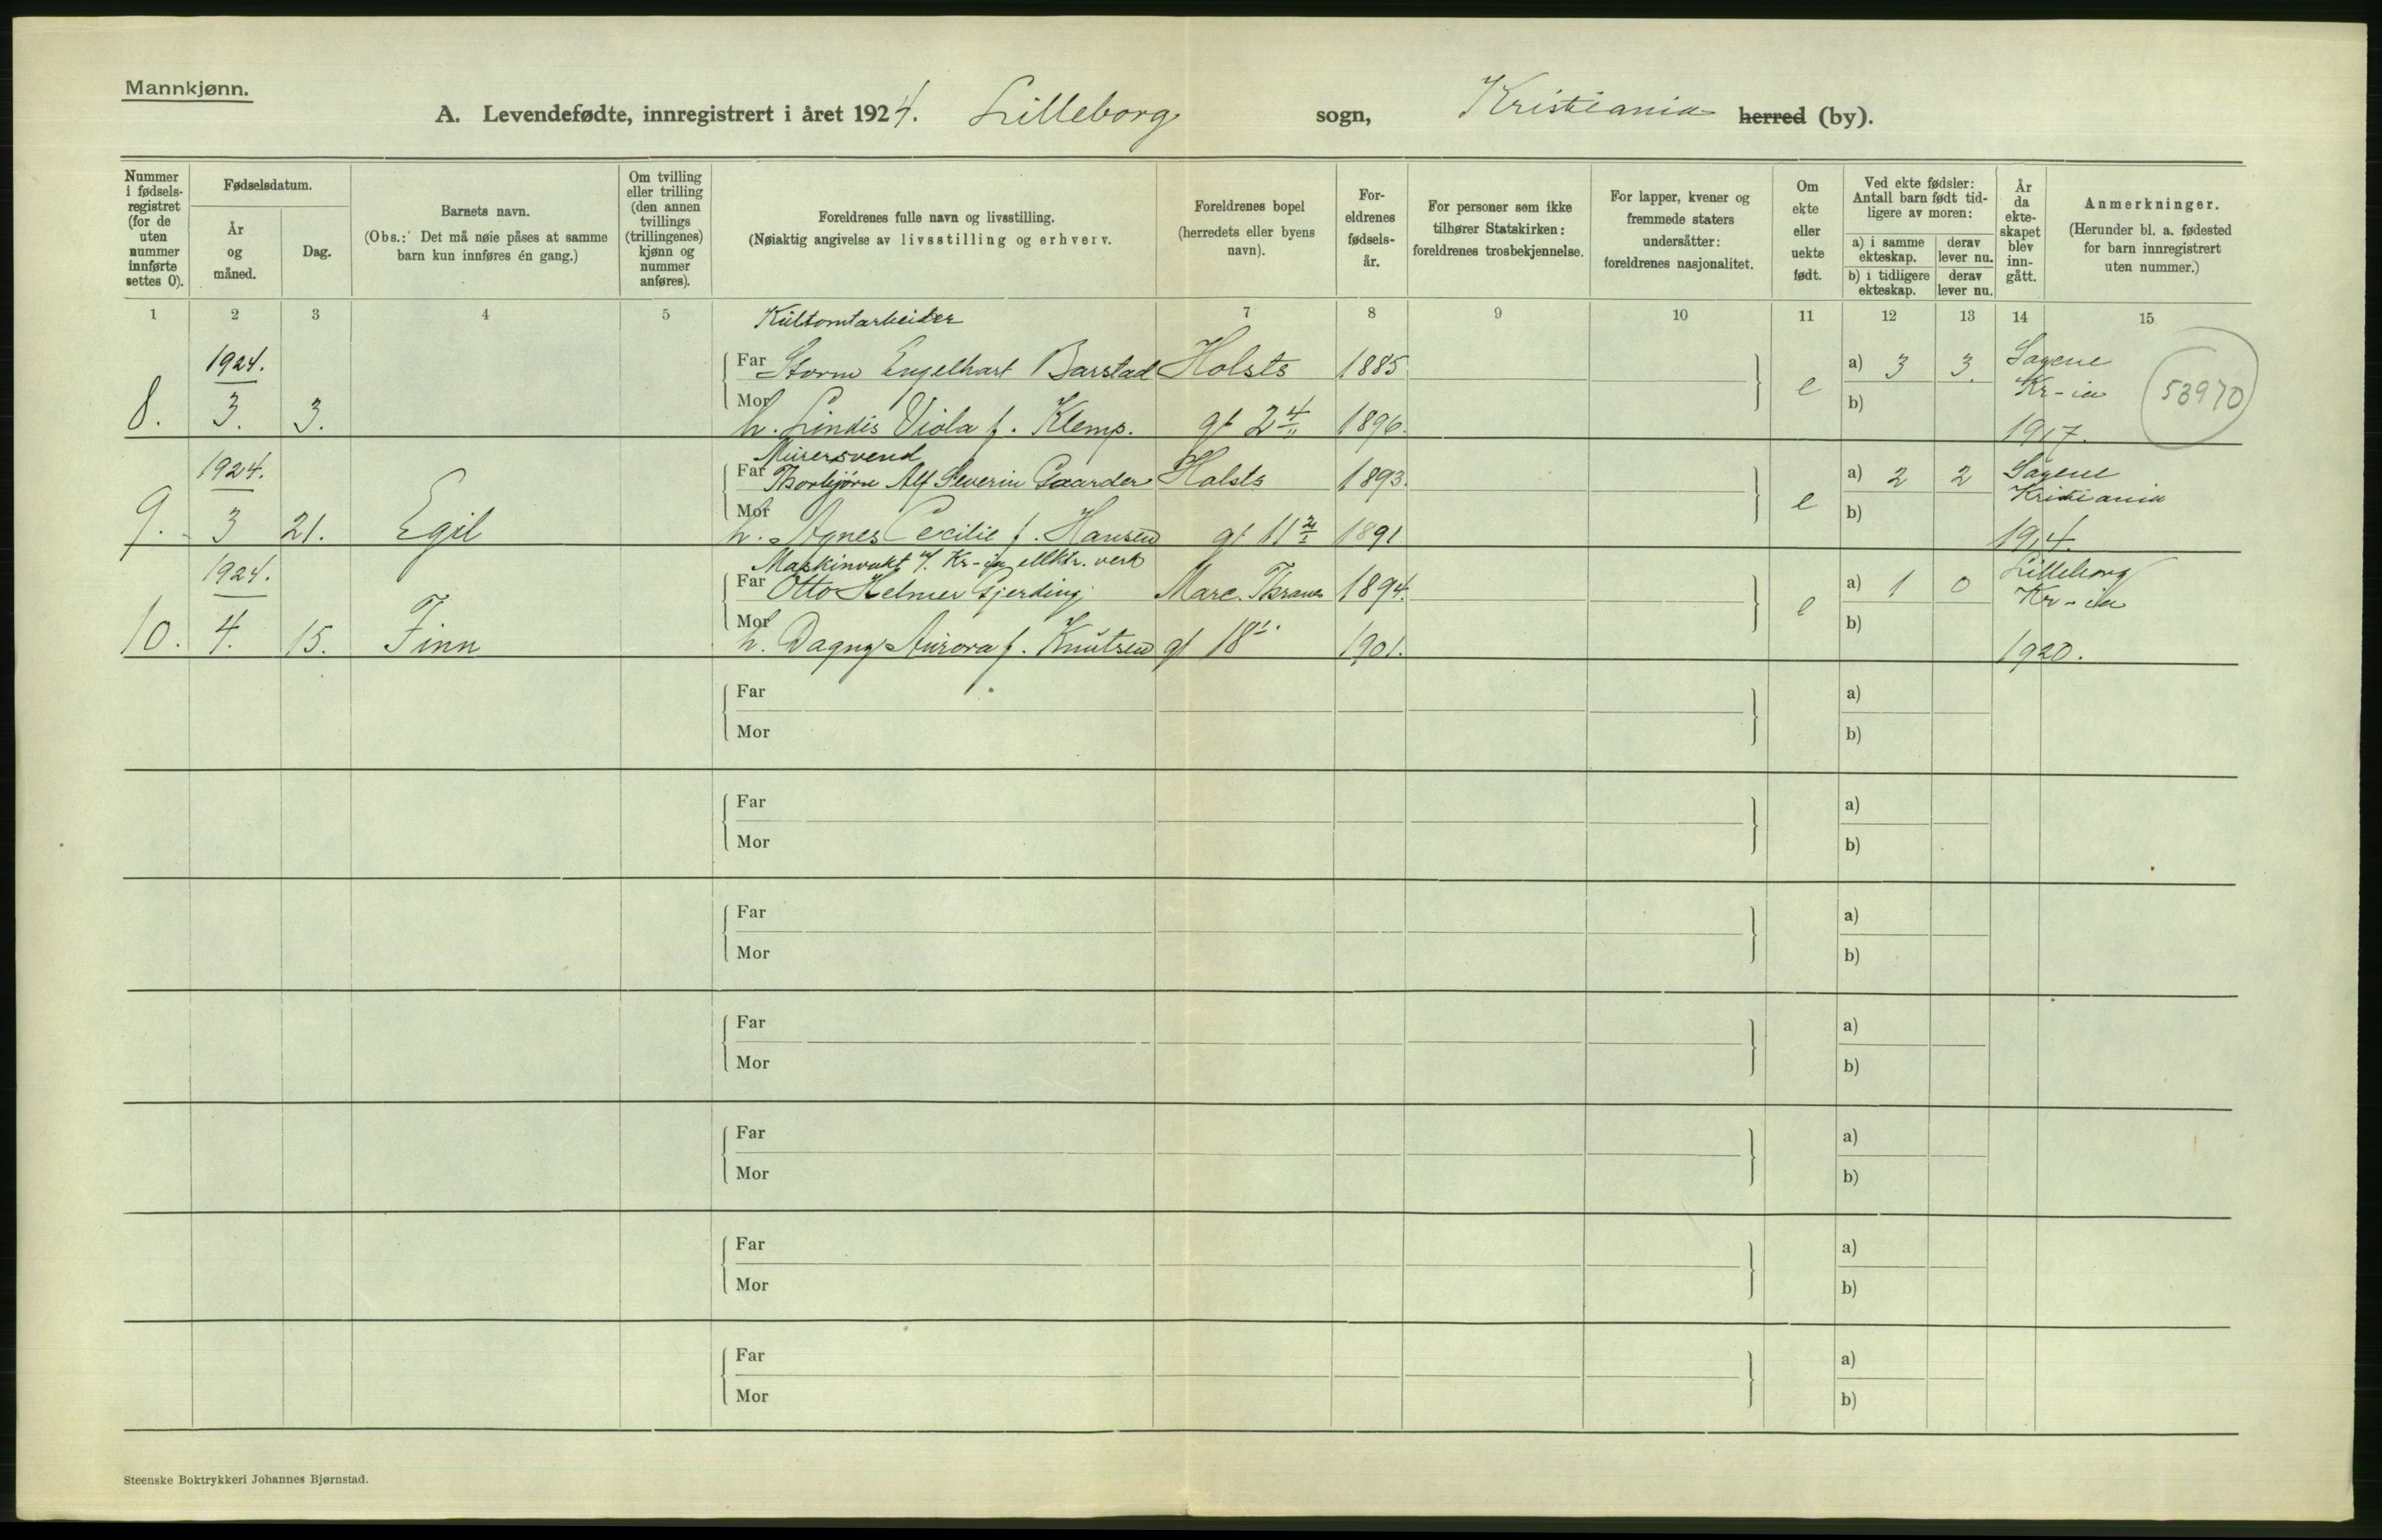 Mannkjønn.
A. Levendefødte, innregistrert i året 1924. Lilleborg sogn, Kristiania herred (by).
Nummer i fødsels-registret (for de uten nummer innførte settes 0).
Fødselsdatum.
År og måned.
Dag.
Barnets navn.
(Obs.: Det må nøie påses at samme barn kun innføres én gang.)
Om tvilling eller trilling (den annen tvillings (trillingenes) kjønn og nummer anføres).
Foreldrenes fulle navn og livsstilling.
(Nøiaktig angivelse av livsstilling og erhverv.
Foreldrenes bopel (herredets eller byens navn).
For-eldrenes fødsels-år.
For personer som ikke tilhører Statskirken: foreldrenes trosbekjennelse.
For lapper, kvener og fremmede staters undersåtter: foreldrenes nasjonalitet.
Om ekte eller uekte født.
Ved ekte fødsler: Antall barn født tid-ligere av moren:
a) i samme ekteskap. derav lever nu.
b) i tidligere ekteskap. derav lever nu.
År da ekte-skapet blev inn-gått.
Anmerkninger.
(Herunder bl. a. fødested for barn innregistrert uten nummer.)
1 2 3 4 5 7 8 9 10 11 12 13 14 15
Kultomtarbeider
1924. Far Storm Engelhart Barstad Holsts 1885 a) 3 3. Sagene
e Kr-ia 53970
8. 3. 3. Mor h. Lindis Viola f. Klemp. gt 2 4/" 1896. b) 1917.
Murersvend
1924. Far Thorbjørn Alf Severin Gaarder Holsts 1893. a) 2 2 Sagene
e Kristiania
9. 3 21. Egil Mor h. Agnes Cecilie f. Hansen gt 11 1891 b) 1914.
Maskinvakt v/. Kr-ia elktr. verk
1924. Far Otto Helmer Gjerding Marc. Thranes 1894. a) 1 0 Lilleborg
e Kr-ia
10. 4. 15. Finn Mor h. Dagny Aurora f. Knutsen gt 18 1901. b) 1920.
Far a)
Mor b)
Far a)
Mor b)
Far a)
Mor b)
Far a)
Mor b)
Far a)
Mor b)
Far a)
Mor b)
Far a)
Mor b)
Steenske Boktrykkeri Johannes Bjørnstad.